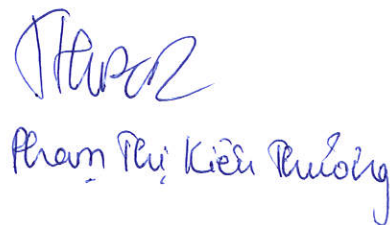 Phạm Thị Kiều Thương